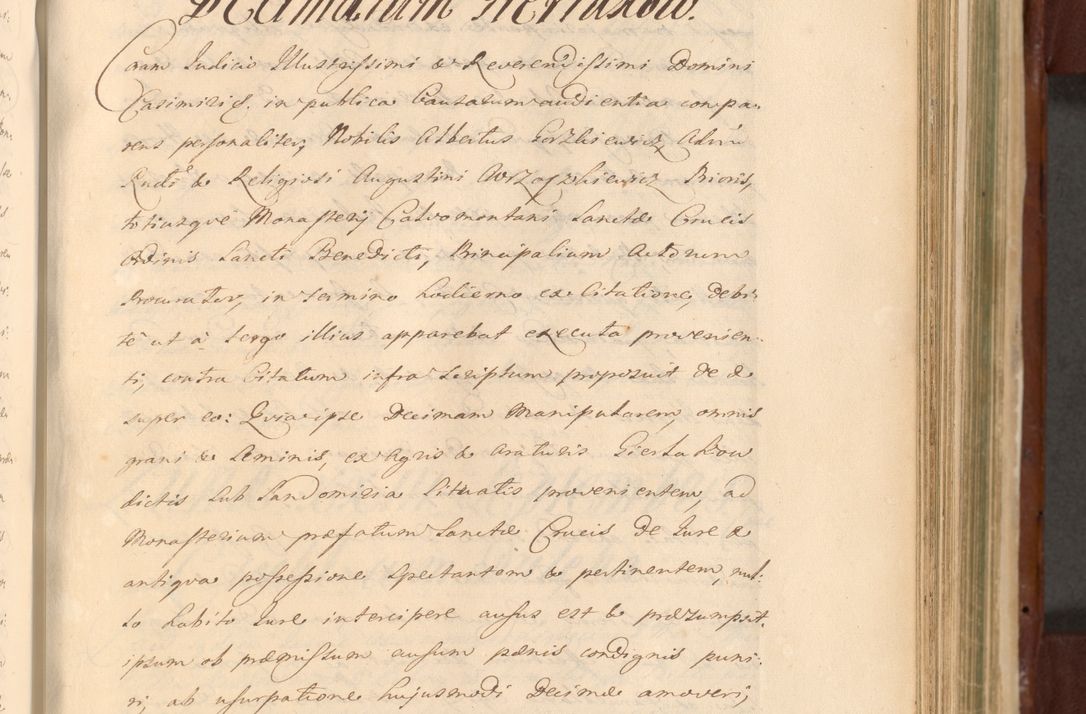 Decimarum Gierlaxow.
Coram Iudicio Illustrissimi & Reverendissimi Domini
Casimiri &. in publica Causarum audientia compa-
rens personaliter, Nobilis Albertus Gorzkiewicz Adm
Rndi & Religiosi Augustini Prioris,
totiusque Monasterij Calvomontani Sanctæ Crucis
Ordinis Sancti Benedicti, Principalium Actorum
Procurator, in termino hodierno ex Citatione, debi-
te ut à tergo illius apparebat executa provenien-
ti, contra Citatum infra scriptum proposuit de &
super eo: Quia ipse Decimam Manipularem, omnis
grani & seminis, ex Agris & araturis Gierlaxow
dictis sub Sandomiria situatis provenientem, ad
Monasterium præfatum Sanctæ Crucis de Iure &
antiqua possessione spectantem & pertinentem, nul-
lo habito Iure intercipere ausus est & præsumpsit.
ipsum ob præmissum ausum pænis condignis puni-
ri, ab usurpatione hujusmodi Decimæ amoveri,